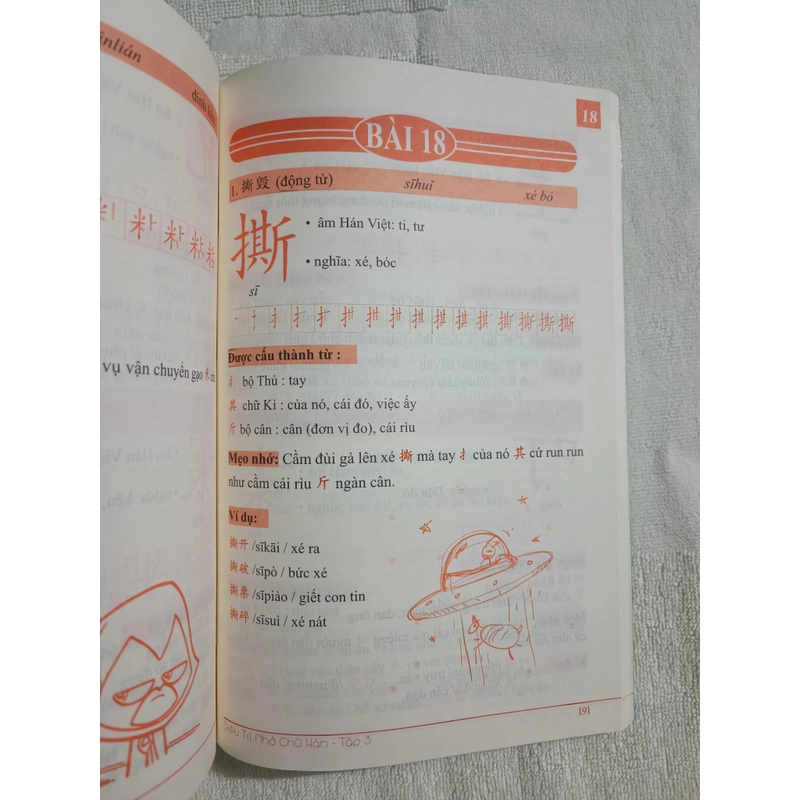 18
BÀI 18
1. 撕毁 (động từ) sīhuǐ xé bỏ
撕
• âm Hán Việt: ti, tư
• nghĩa: xé, bóc
sī
Được cấu thành từ :
扌 bộ Thủ : tay
其 chữ Kì : của nó, cái đó, việc ấy
斤 bộ cân : cân (đơn vị đo), cái rìu
Mẹo nhớ: Cầm đùi gà lên xé 撕 mà tay 扌 của nó 其 cứ run run
như cầm cái rìu 斤 ngàn cân.
Ví dụ:
撕开 /sīkāi / xé ra
撕破 /sīpò / bức xé
撕票 /sīpiào / giết con tin
撕碎 /sīsuì / xé nát
191
Siêu Trí Nhớ Chữ Hán - Tập 3
vụ vận chuyển gạo 米